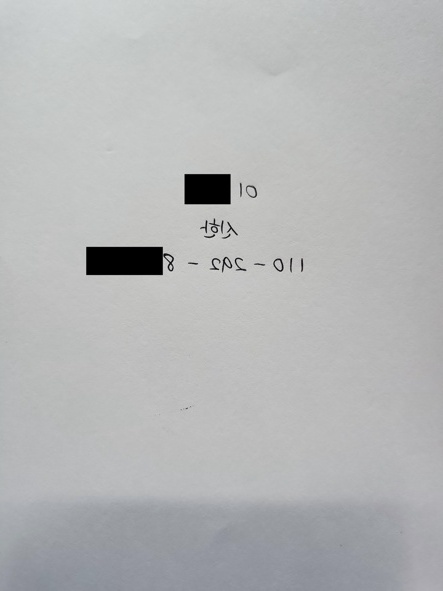 이
신한
110 - 292 - 8